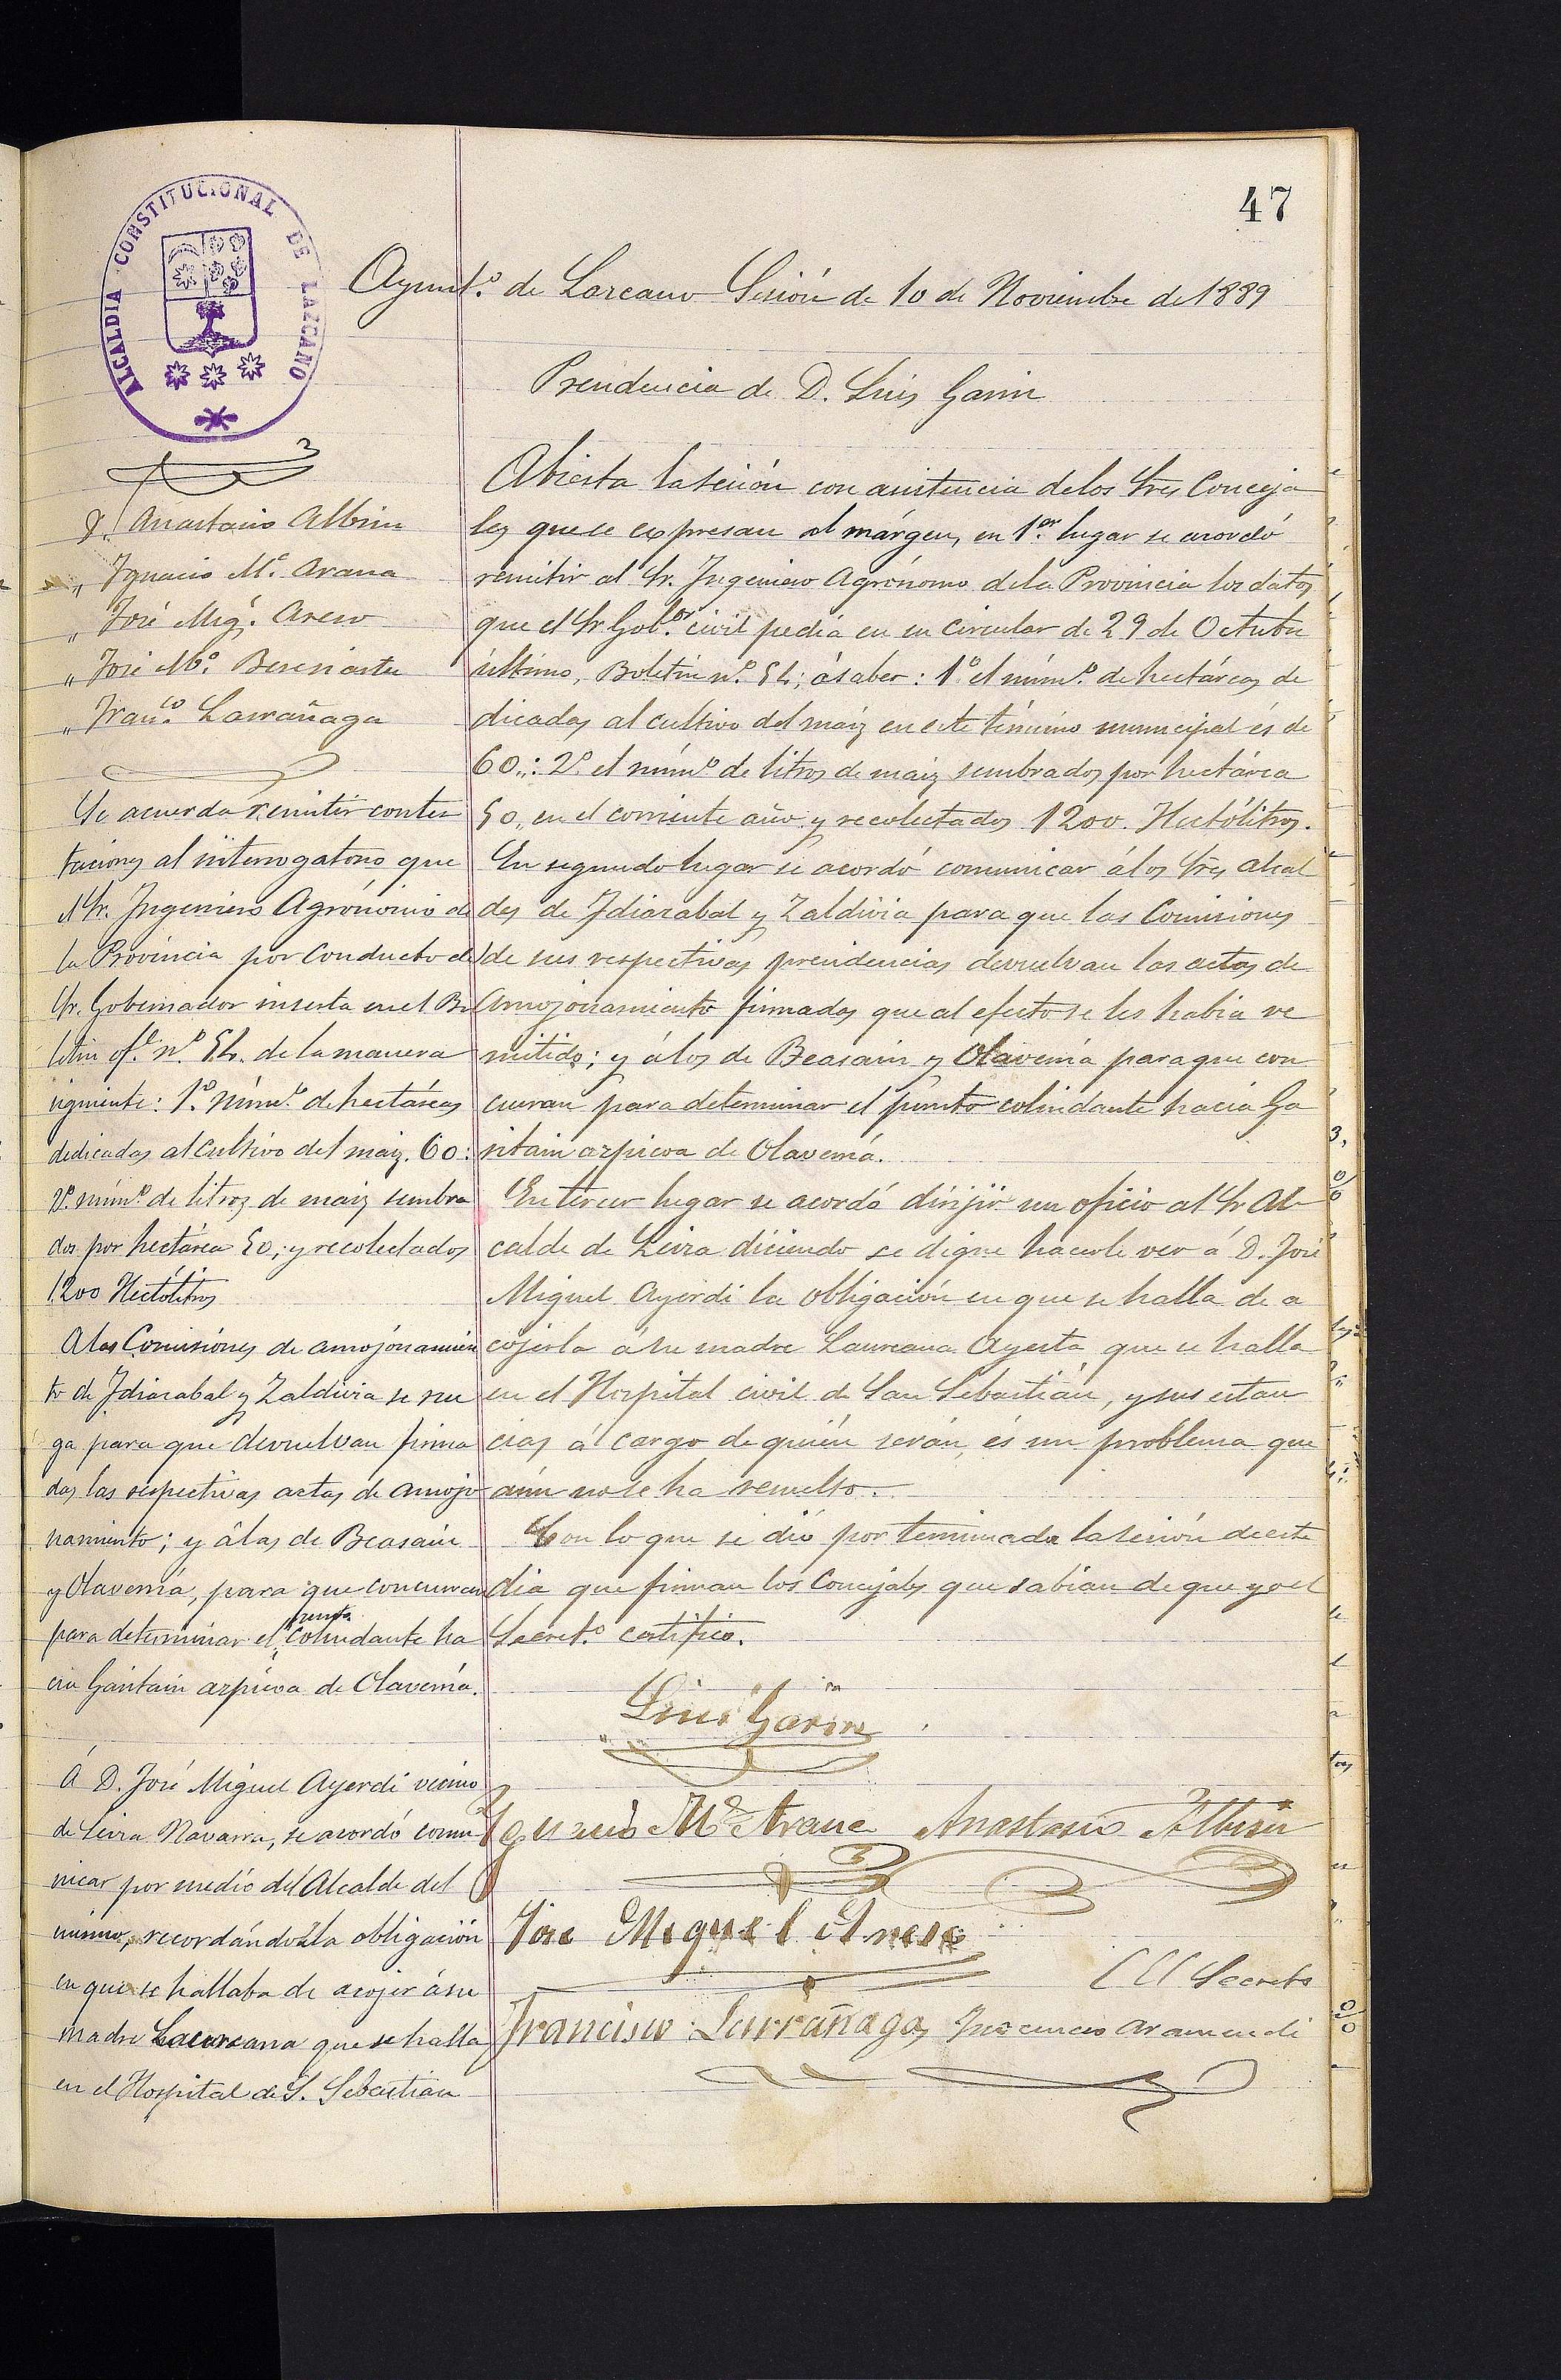 47
ALCALDIA CONSTITUCIONAL DE LAZCANO
Ayunt.º de Lazcano Sesión de 10 de Noviembre de 1889
Presidencia de D. Luis Garin
D. Anastasio Albisu
„ Ignacio M.ª Arana
„ José Mig.l Areso
„ José M.ª Beresiartu
„ Fran.co Larrañaga
Se acuerda remitir contes
taciones al interrogatorio que
el Sr. Ingeniero Agrónomo de
la Provincia por conducto del
Sr. Gobernador inserta en el Bo
letin of.l n.º 54. de la manera
siguiente: 1.º núm.º de hectáreas
dedicadas al cultivo del maiz. 60:
2.º núm.º de litros de maiz sembra
dos por hectárea 50; y recolectados
1200 Hectólitros
A las Comisiones de amojonamien
to de Idiazabal y Zaldivia se rue
ga para que devuelvan firma
das las respectivas actas de amojo
namiento; y á las de Beasain
y Olaverría, para que concurran
para determinar el punto colindante ha
cia Gaintain azpicoa de Olaverría.
Á D. José Miguel Ayerdi vecino
de Leiza Navarra, se acordó comu
nicar por medio del Alcalde del
mismo, recordándole la obligación
en que se hallaba de acojer á su
madre Laureana que se halla
en el Hospital de S. Sebastian
Abierta la sesión con asistencia de los Sres Conceja
les que se expresan al márgen, en 1.er lugar se acordó
remitir al Sr. Ingeniero Agrónomo de la Provincia los datos
que el Sr Gob.or civil pedia en su circular de 29 de Octubre
último, Boletin n.º 54; á saber: 1.º el núm.º de hectáreas de
dicadas al cultivo del maiz en este término municipal és de
60„: 2.º el núm.º de litros de maiz sembrados por hectárea
50„ en el corriente año y recolectados 1200. Hectólitros.
En segundo lugar se acordó comunicar á los Sres alcal
des de Idiazabal y Zaldivia para que las Comisiones
de sus respectivas presidencias devuelvan las actas de
amojonamiento firmadas que al efecto se les habia re
mitido; y á los de Beasain y Olaverría para que con
curran para determinar el punto colindante hacia Ga
intain azpicoa de Olaverría.
En tercer lugar se acordó dirijir un oficio al Sr Al-
calde de Leiza diciendo se digne hacerle ver á D. José
Miguel Ayerdi la obligación en que se halla de a
cojerla á su madre Laureana Ayesta que se halla
en el Hospital civil de San Sebastián, y sus estan
cias á cargo de quién serán, és un problema que
aún no se ha resuelto.
Con lo que se dió por terminada la sesión de este
dia que firman los Concejales que sabian de que yo el
Secret.º certifico.
Luis Garin
Ignacio M.ª Arana Anastasio Albisu
Jose Miguel Areso
El Secreto
Francisco Larrañaga Inocencio Aramendi